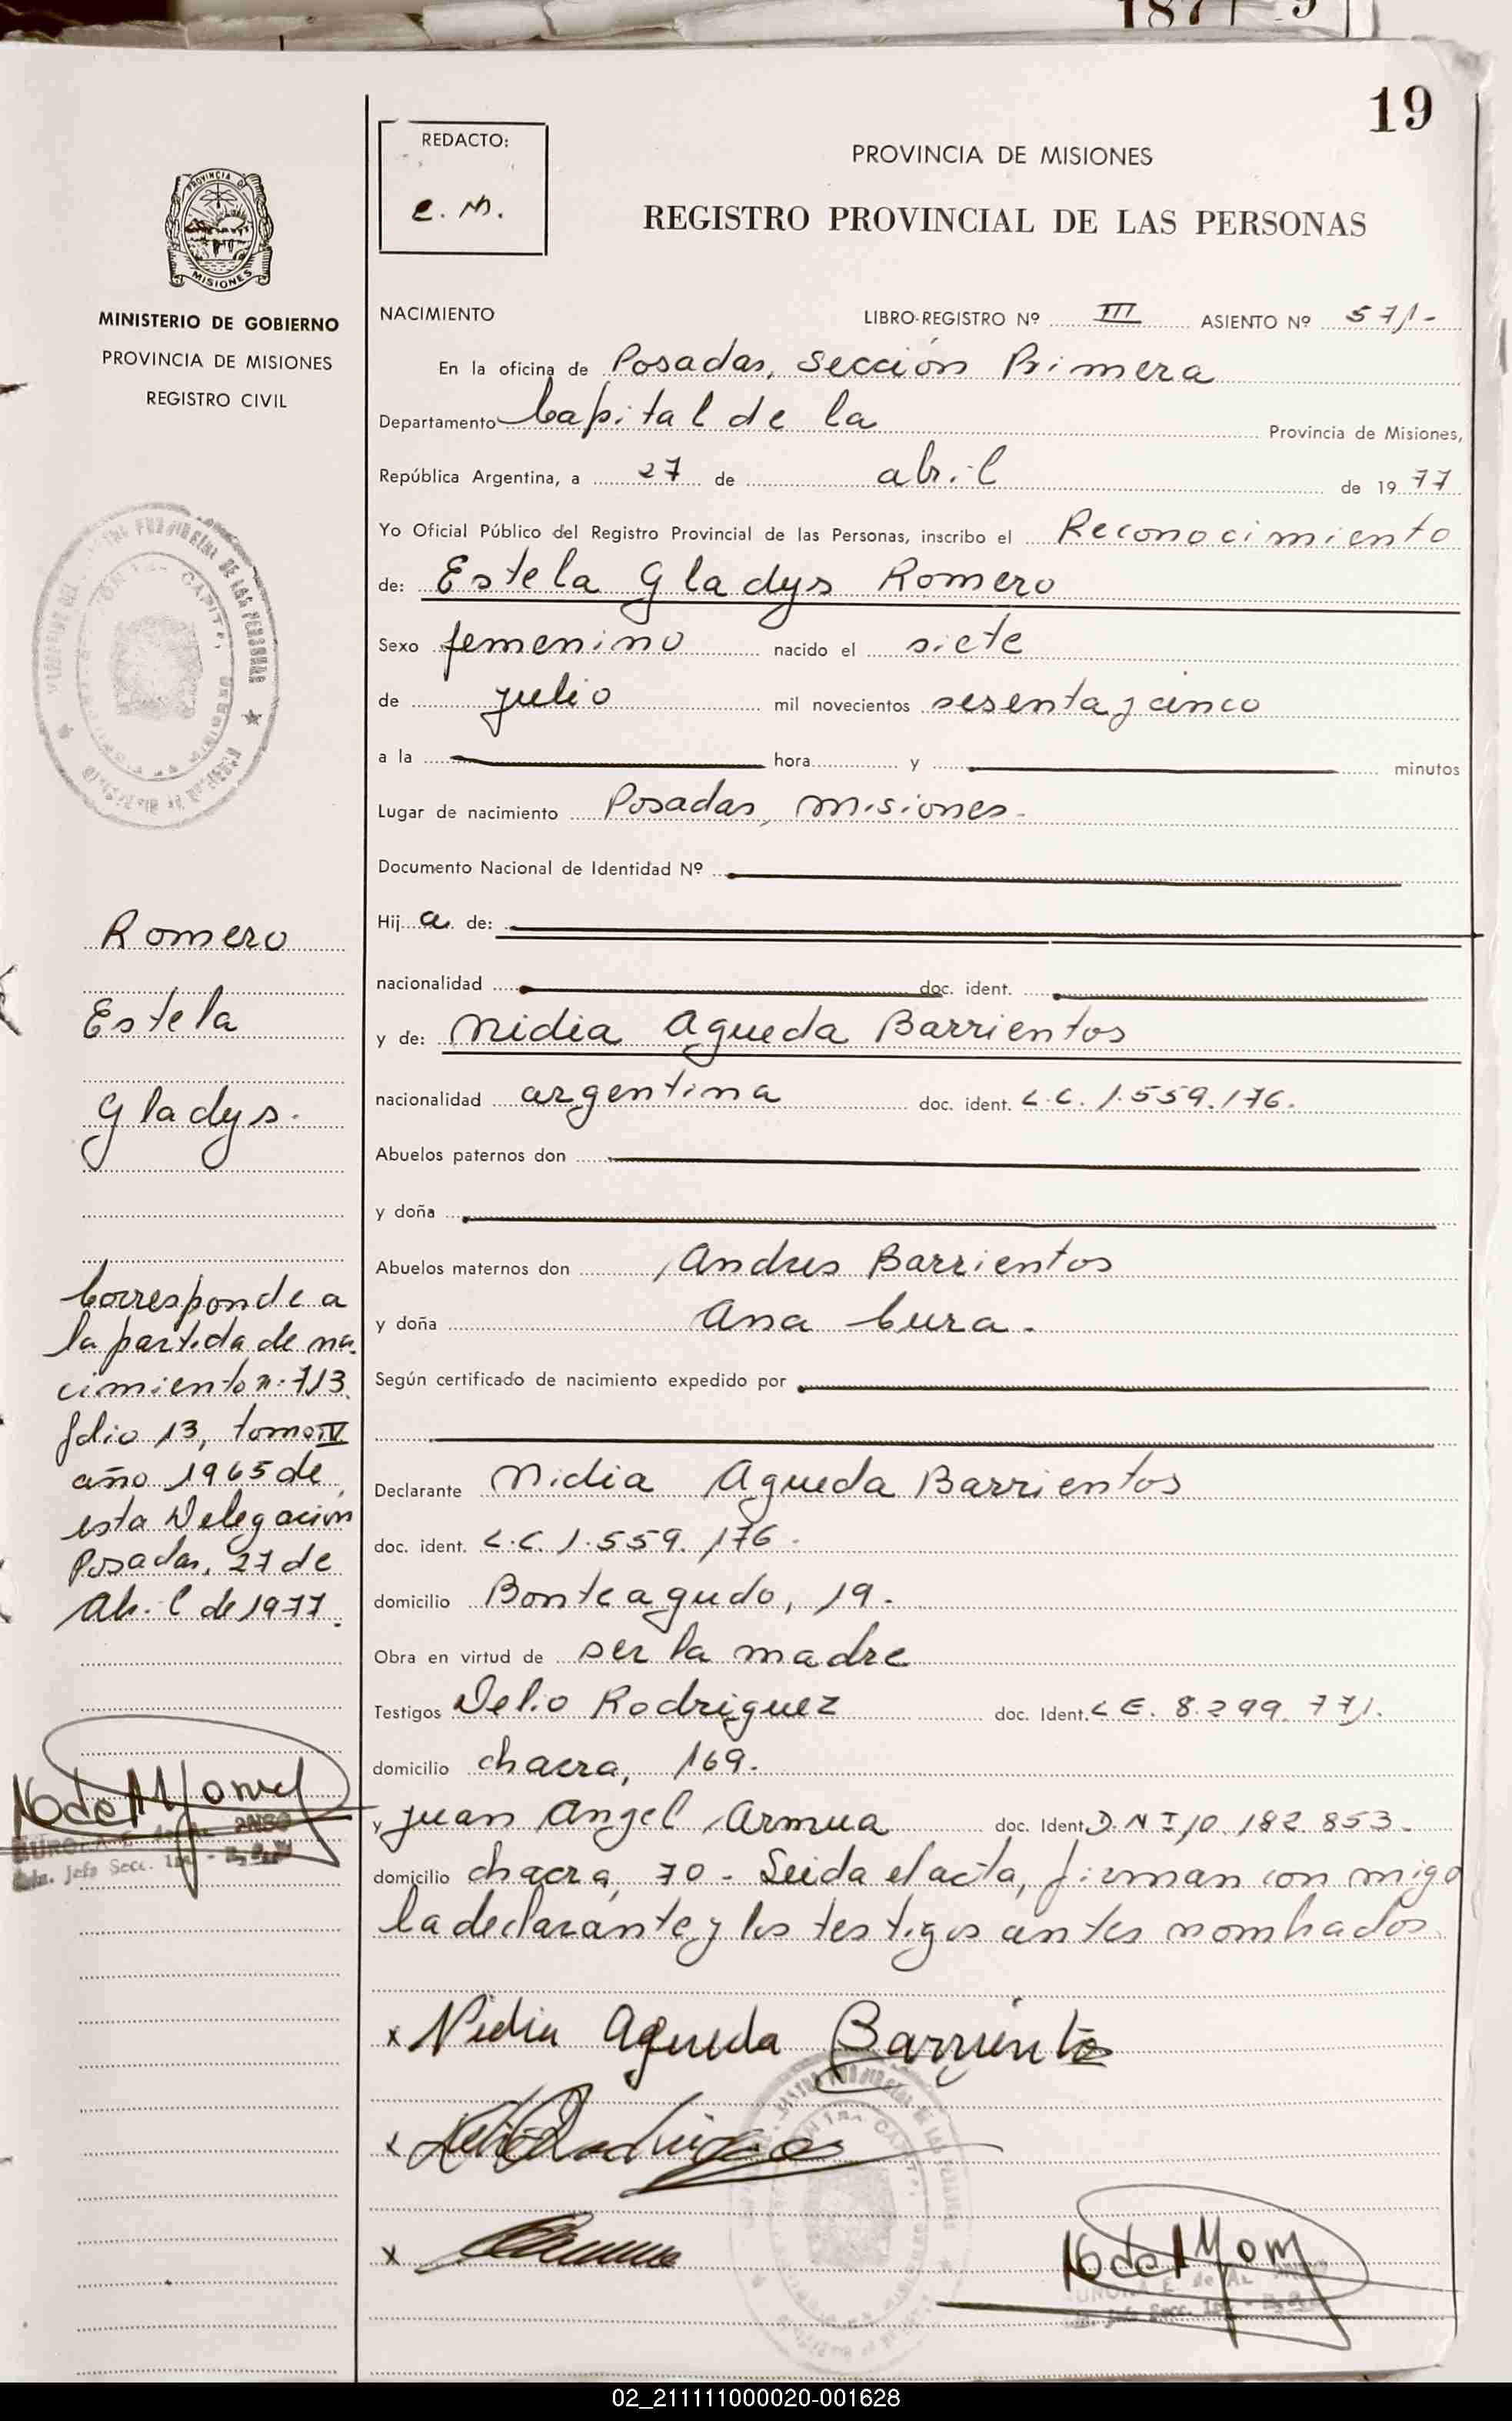 19
REDACTO:
e. m.
PROVINCIA DE MISIONES
REGISTRO PROVINCIAL DE LAS PERSONAS
PROVINCIA DE
MISIONES
MINISTERIO DE GOBIERNO
PROVINCIA DE MISIONES
REGISTRO CIVIL
NACIMIENTO LIBRO-REGISTRO Nº III ASIENTO Nº 571-
En la oficina de Posadas, Sección Primera
Departamento Capital de la Provincia de Misiones,
República Argentina, a 27 de abril de 1977
Yo Oficial Público del Registro Provincial de las Personas, inscribo el Reconocimiento
de: Estela Gladys Romero
Sexo femenino nacido el siete
de julio mil novecientos sesenta y cinco
a la hora y minutos
Lugar de nacimiento Posadas, misiones-
Documento Nacional de Identidad Nº
Hij a de:
nacionalidad doc. ident.
y de: Nidia Agueda Barrientos
nacionalidad argentina doc. ident. L.C. 1.559.176.
Abuelos paternos don
y doña
Abuelos maternos don Andres Barrientos
y doña Ana Cura.
Según certificado de nacimiento expedido por
Declarante Nidia Agueda Barrientos
doc. ident. L.C. 1.559.176-
domicilio Bonteagudo, 19.
Obra en virtud de ser la madre
Testigos Delio Rodriguez doc. Ident. L E. 8.299.771.
domicilio chacra, 169.
y Juan Angel Armua doc. Ident. D N I 10.182.853-
domicilio chacra, 70- Leida el acta, firman con migo
la declarante y los testigos antes nombrados.
Romero
Estela
Gladys.
Corresponde a
la partida de na
cimiento n: 713
folio 13, tomo IV
año 1965 de
esta Delegación
Posadas, 27 de
Abril de 1977.
x Nidia Agueda Barrientos
x
x
02_211111000020-001628